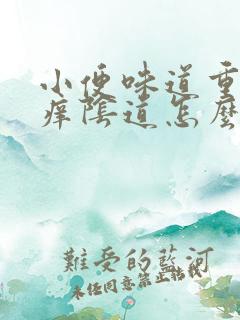 小便味道重
痒陰道怎麼
難受的藍河
未经同意禁止转载